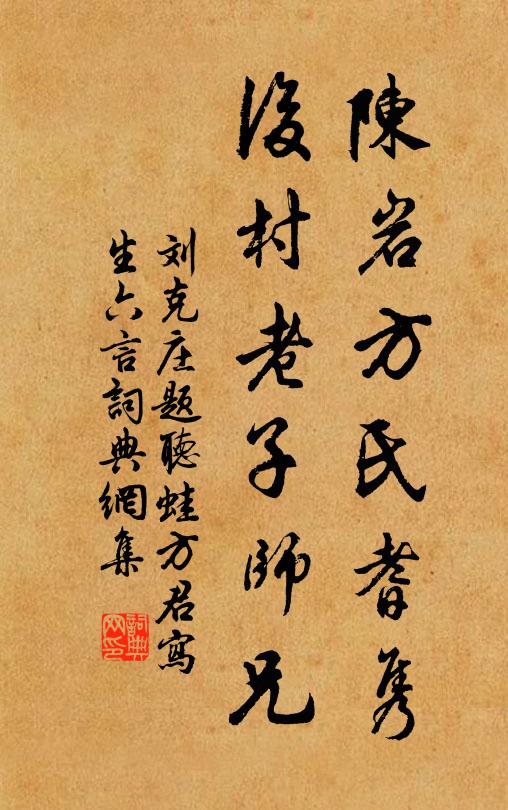 陳岩方氏耆隽
後村老子師兄
刘克庄題聽蛙方君寫
生六言詞典網集
詞典网印